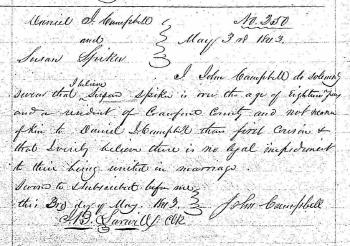 Daniel J. Campbell No. 350
and May 3rd 1843.
Susan Spiker
I John Campbell do solemnly
I believe
swear that Susan Spiker is over the age of Eighteen years
and a resident of Crawford County and not nearer
of kin to Daniel J. Campbell than first Cousin &
that I verily believe there is no legal impediment
to their being united in marriage.
Sworn to & subscribed before me
this 3rd day of May 1843. John Campbell
Clk